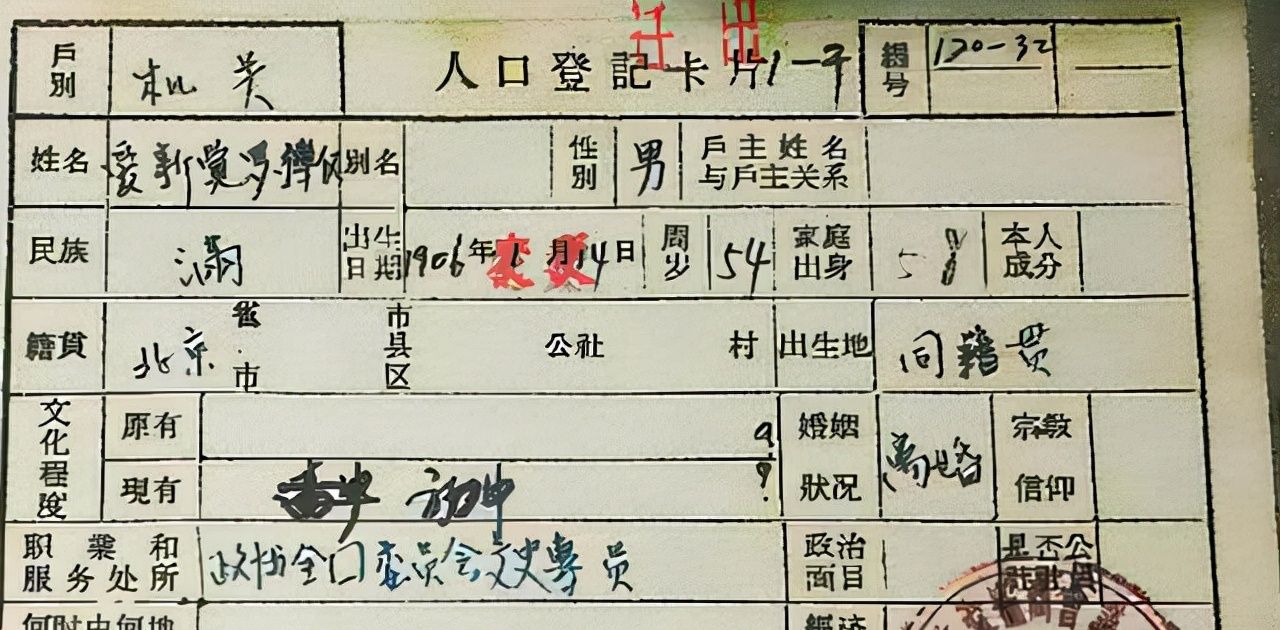 戶別 机关 人口登記卡片 1-7 編号 120-32
姓名 愛新覺羅 別名 性別 男 戶主姓名与戶主关系
民族 满 出生日期 1906年1月14日 周岁 54 家庭出身 本人成分
籍貫 北京 省市 市县区 公社 村 出生地 同籍贯
文化程度 原有 婚姻狀况 离婚 宗教信仰
現有 初中
职業和服务处所 政协全囗委员会文史專员 政治面目 是否公
何时由何地 經济